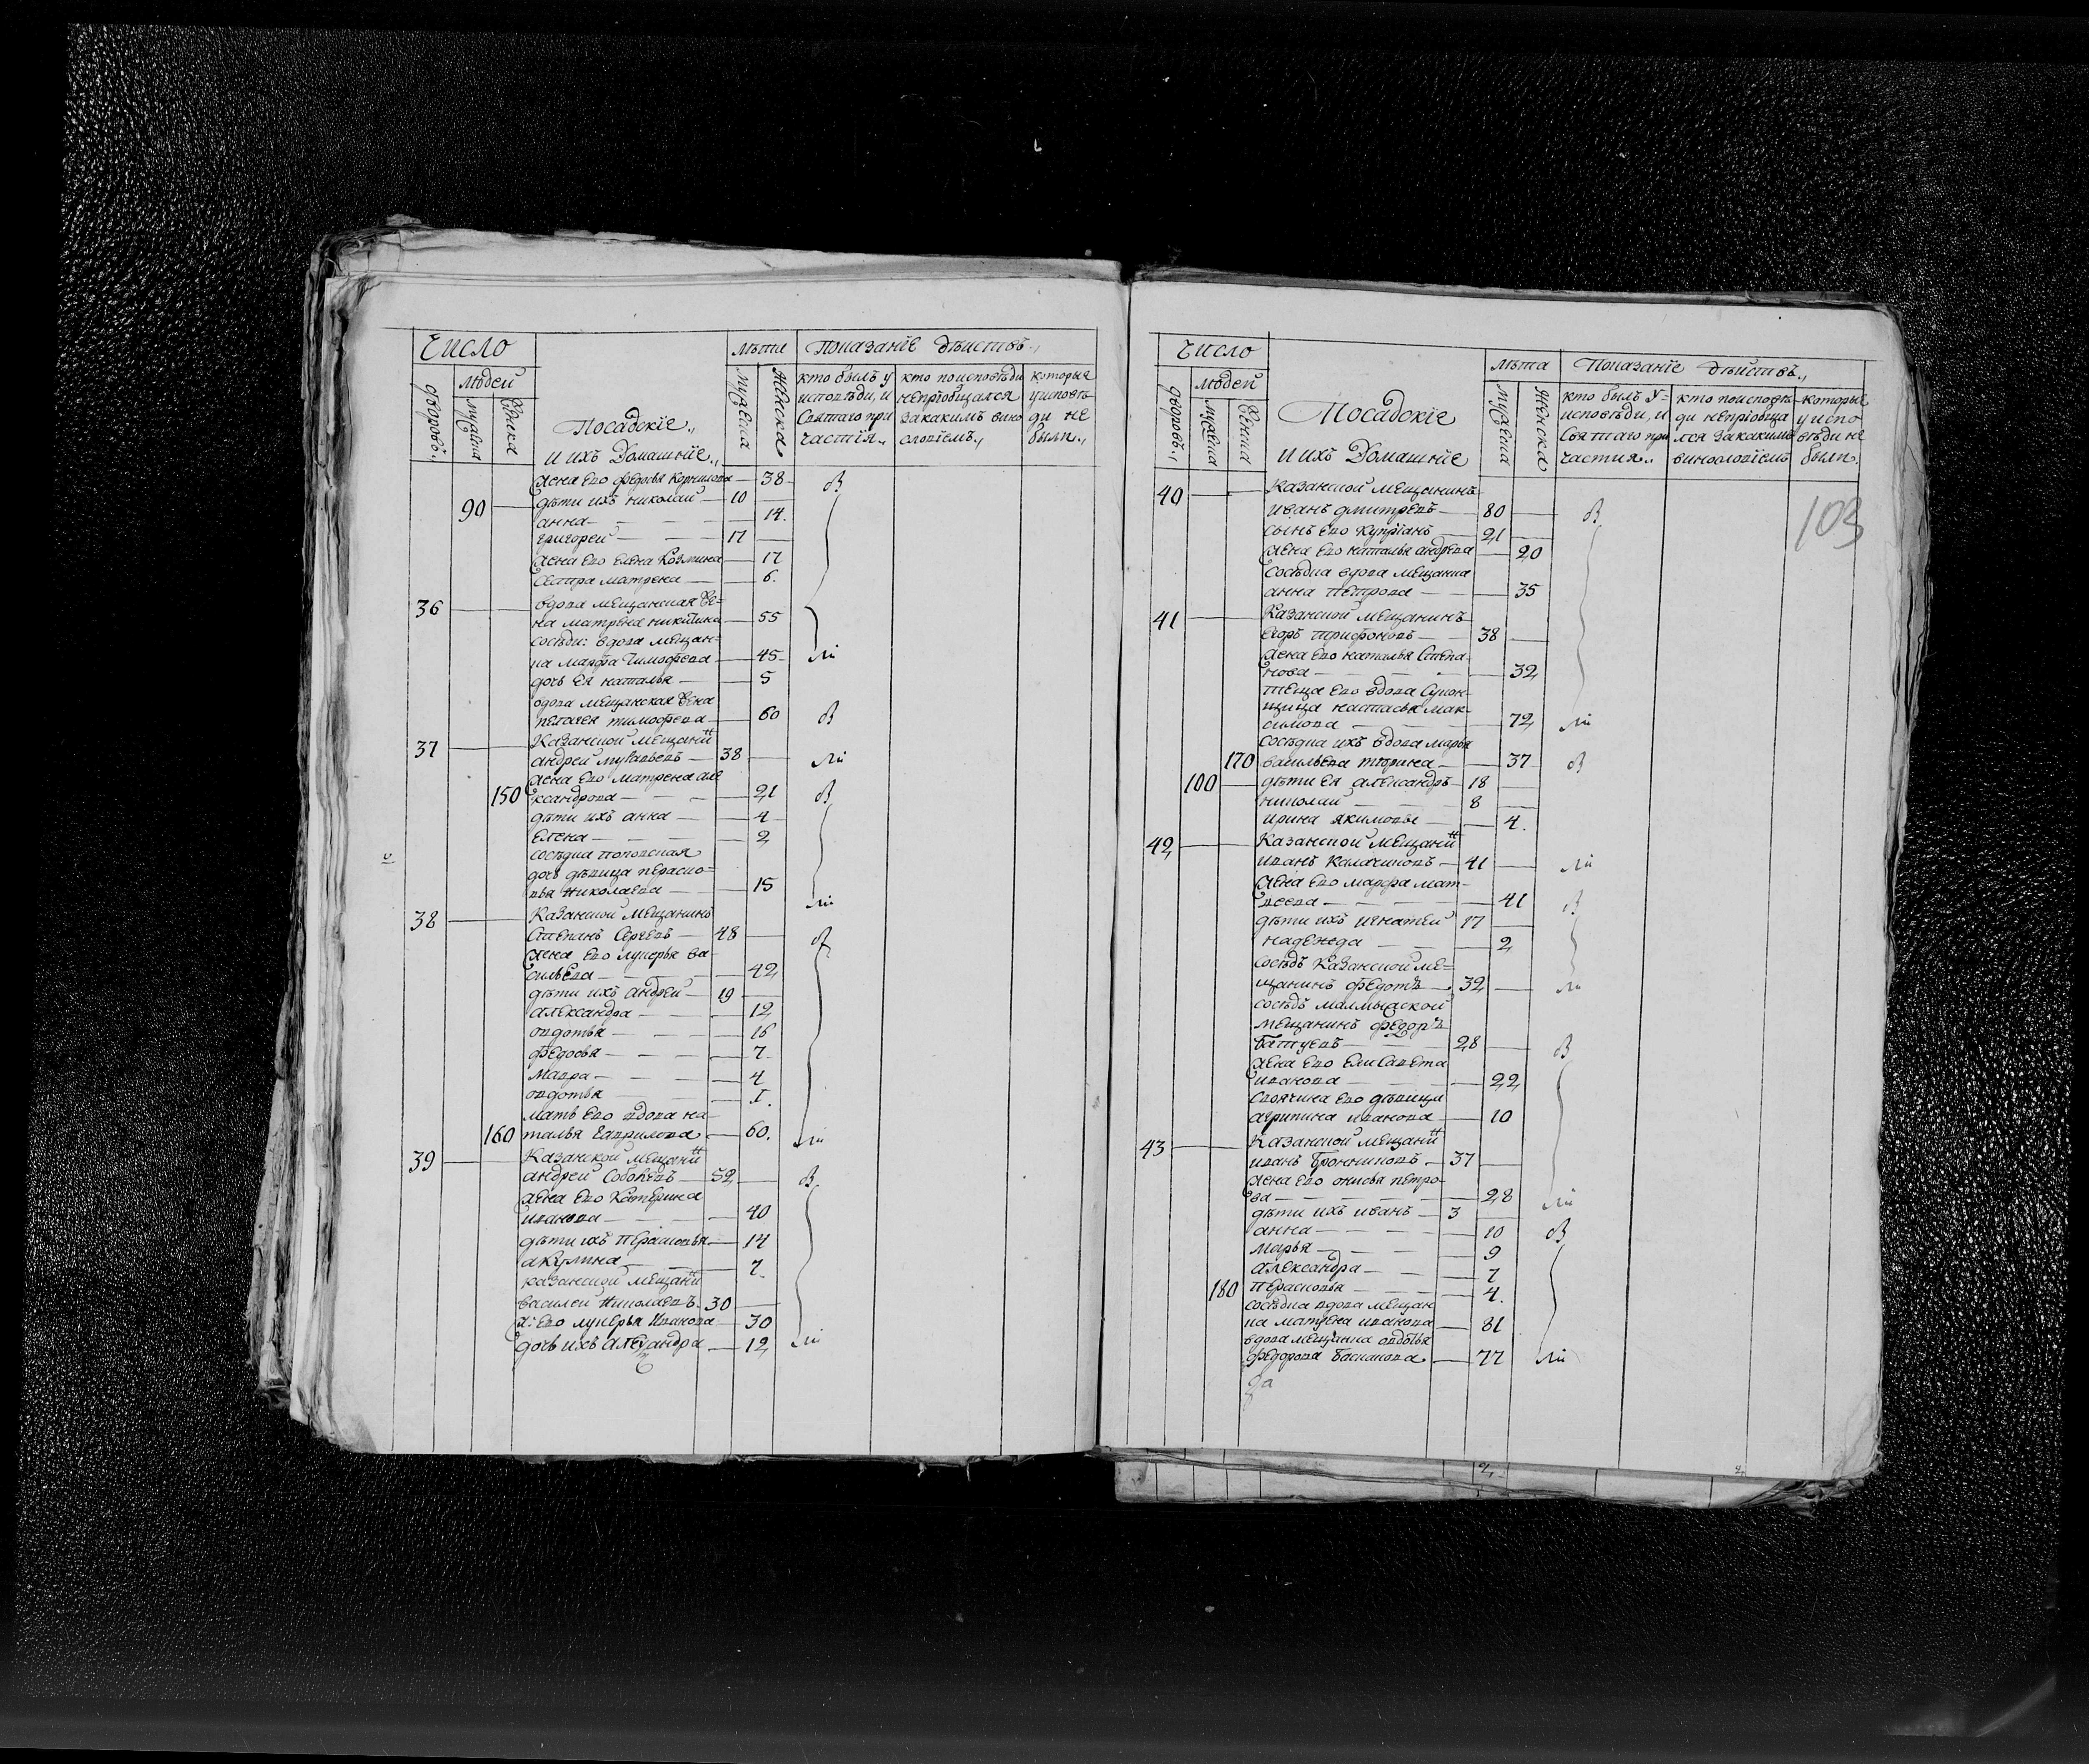 Число
Лѣта
Показанїе дѣйствъ.,
дворовъ.,
людей
мужеска
женска
Посадскїе.,
и ихъ Домашнїе.,
мужеска
женска
кто былъ у
исповѣди, и
Святаго при
частїя.,
кто поисповѣди
непрїобщался
закакимъ вино
словїемъ.,
которые
уисповѣ
ди не
были.,
жена его федосья Корнилова — 38
90 дѣти ихъ николай — 10
анна — 14.
григорей — 17
жена его Елена Козмина — 17
сестра матрена — 6.
36 вдова мещанская же=
на матрена никитина — 55
сосѣди: вдова мещан-
ка марфа Тимофеева — 45
дочь Ея наталья — 5
вдова мещанская жена
пелагея тимофеева — 60
37 Казанской мещани
андрей — 38
жена его матрена але
150 ксандрова — 21
дѣти ихъ анна — 4
Елена — 2
сосѣдка поповская
дочь дѣвица параско=
вья Николаева — 15
38 Казанской мещанинъ
Степанъ Сергеевъ — 48
жена его лукерья ва-
сильева — 42
дѣти ихъ андрей — 19
александра — 12
овдотья — 16
федосья — 7
мавра — 4
овдотья — 1.
мать его вдова на-
160 талья гаврилова — 60.
39 Казанской мещани
андрей — 52
жена его Катерина
иванова — 40
дѣти ихъ перасковья — 14
акулина — 7
казанской мещани
василей Николаевъ 30
ж: его лукерья Иванова — 30
дочь ихъ Александра — 12
Число
Лѣта
Показанїе дѣйствъ.,
дворовъ.,
людей
мужеска
женска
Посадскїе
и ихъ Домашнїе
мужеска
женска
кто былъ у=
исповѣди, и
Святаго при
частия.,
кто поисповѣ
ди непрїобща
лся закакимъ
винословїемъ
которые
у испо
вѣди не
были.
103
40 Казанской мещанинъ
Иванъ дмитревъ — 80
сынъ его Купрїанъ — 21
жена его наталья андреева — 20
сосѣдка вдова мещанка
анна петрова — 35
41 Казанской мещанинъ
егоръ трифоновъ — 38
жена его наталья Степа-
нова — 32
теща его вдова
настасья мак-
симова — 72
сосѣдка ихъ вдова марья
170 васильева — 37
100 дѣти ея александръ — 18
николай — 8
ирина якимовы — 4.
42 Казанской мещани
иванъ Калачниковъ — 41
жена его марфа мат-
веева — 41
дѣти ихъ игнатей 17
надежда — 2
сосѣдъ Казанской ме=
щанинъ федотъ 32
сосѣдъ малмыжской
мещанинъ федоръ
Батуевъ — 28
жена его Елисавета
иванова — 22
своячина его дѣвица
агрипина иванова — 10
43 Казанской мещани
иванъ Бронниковъ — 37
жена его онисья петро-
ва — 28
дѣти ихъ иванъ — 3
анна — 10
марья — 9
александра — 7
180 перасковья — 4.
сосѣдка вдова мещан
ка матрена иванова — 81
вдова мещанка овдотья
федорова Басманова — 77